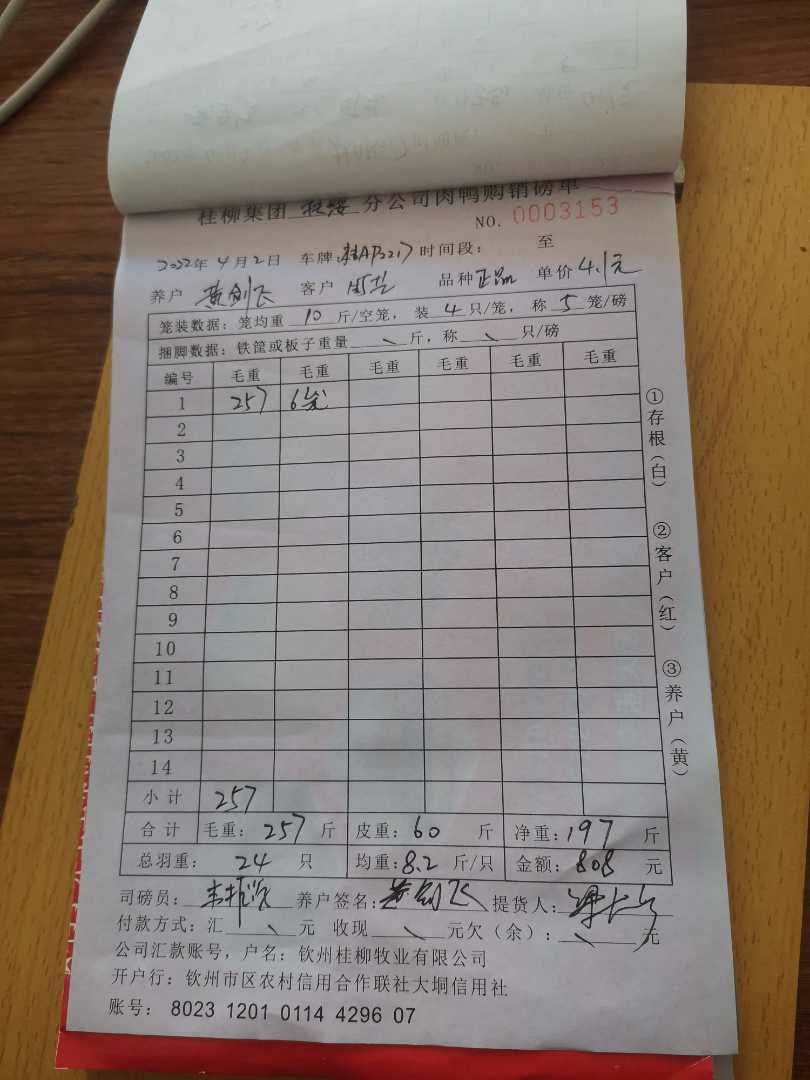 桂柳集团 扶绥 分公司肉鸭购销磅单
NO. 0003153
2022年4月2日 车牌: 时间段: 至
养户 黄剑飞 客户 品种 正品 单价 4.1元
笼装数据: 笼均重 10 斤/空笼, 装 4 只/笼, 称 5 笼/磅
捆脚数据: 铁筐或板子重量 斤, 称 只/磅
编号 毛重 毛重 毛重 毛重 毛重 毛重
1 257 6笼
2
3
4
5
6
7
8
9
10
11
12
13
14
小计 257
合计 毛重: 257 斤 皮重: 60 斤 净重: 197 斤
总羽重: 24 只 均重: 8.2 斤/只 金额: 808 元
司磅员: 养户签名: 黄剑飞 提货人:
付款方式: 汇 元 收现 元欠(余): 元
公司汇款账号, 户名: 钦州桂柳牧业有限公司
开户行: 钦州市区农村信用合作联社大垌信用社
账号: 8023 1201 0114 4296 07
①存根(白)
②客户(红)
③养户(黄)